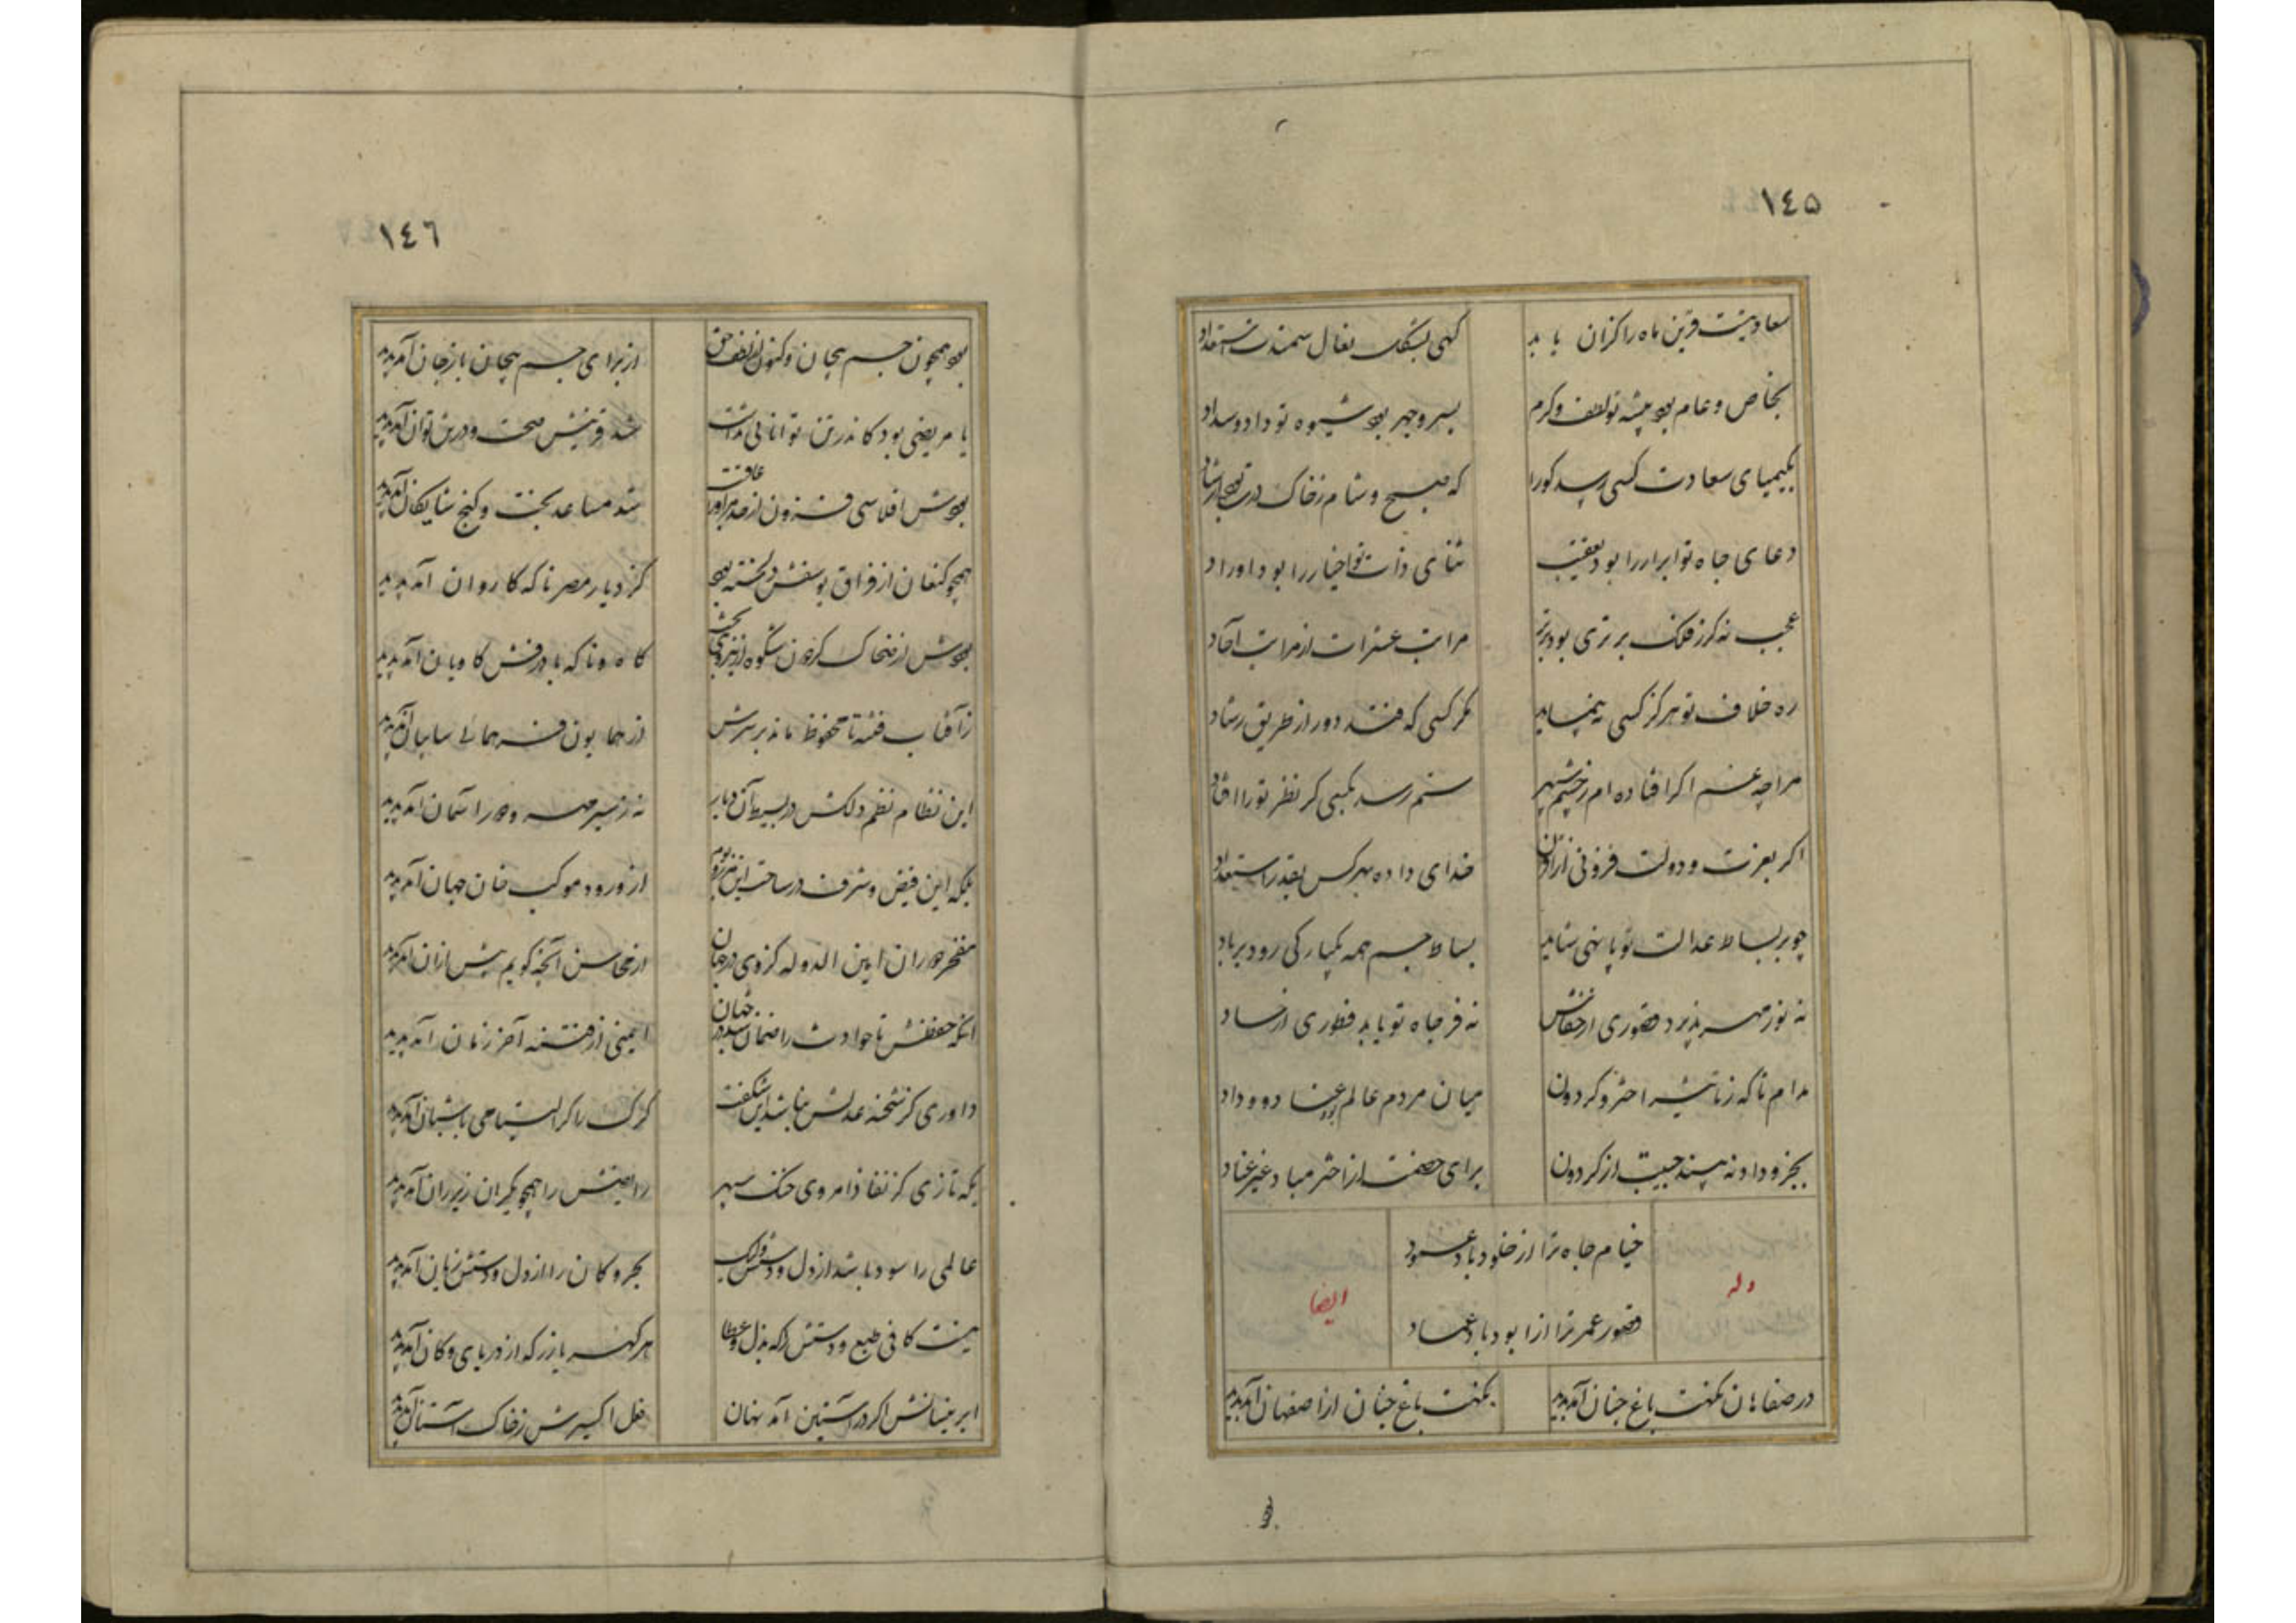 ١٤٥
سعادتست قرین ماه را کزان یابد
کهی بشکل نعال سمندت استعداد
بخاص و عام بود پیشه تو لطف و کرم
بسر و جهر بود شیوه تو داد و سداد
بکیمیای سعادت کسی رسد کورا
که صبح و شام ز خاک درت بود ارشاد
دعای جاه تو ابرار را بود تعقیب
ثنای ذات تو اخیار را بود اوراد
عجب نه کز فلک برتری بود برتر
مراتب عشرات از مراتب آحاد
ره خلاف تو هرگز کسی نپیماید
مگر کسی که فتد دور از طریق رشاد
مرا چه غم اگر افتاده ام ز چشم سپهر
ستم رسد بکسی کز نظر تو را افتاد
اگر بعزت و دولت فزونی از اقران
خدای داده بهر کس بقدر استعداد
چو بر بساط عدالت تو پا نهی شاید
بساط جسم همه یکبارگی رود بر باد
نه نور مهر پذیرد قصوری از خفاش
نه فر جاه تو یابد فطوری از حساد
مرام تا که ز تاثیر اختر و گردون
میان مردم عالم بود عناد و وداد
بجز وداد نه بیند حبیبت از گردون
برای خصمت از اختر مباد غیر عناد
خیام جاه ترا از خلود باد عمود
قصور عمر ترا از ابود باد عماد
وله
ایضا
در صفاهان نکهت باغ جنان آمد پدید
نکهت باغ جنان از اصفهان آمد پدید
١٤٦
بود همچون جسم بیجان و کنون از لطف حق
از برای جسم بیجان باز جان آمد پدید
یا مریضی بود کاندر تن توانائی نداشت
شد قرینش صحت و در تن توان آمد پدید
بودش افلاسی فزون از حد بر اور عاقبت
شد مساعد بخت و گنج شایگان آمد پدید
همچو کنعان از فراق یوسفش دلخسته بود
کز دیار مصر ناگه کاروان آمد پدید
بودش از ضحاک گردون شکوه از نیروی بخت
کاوه و ناگه با درفش کاویان آمد پدید
ز آفتاب فتنه تا محفوظ ماند بر سرش
از همایون فر همائی سایبان آمد پدید
این نظام نظم دلکش در بسیط آن دیار
نه ز سیر مهر و دور آسمان آمد پدید
بلکه این فیض و شرف در ساحت این مرز و بوم
از ورود موکب خان جهان آمد پدید
مفخر دوران امین الدوله کز وی در جهان
از محاسن آنچه گویم بیش از آن آمد پدید
آنکه حفظش تا حوادث را ضمان شد در جهان
ایمنی از فتنه آخر زمان آمد پدید
داوری کز شحنه عدلش نباشد این شگفت
گرگ را گر التیامی با شبان آمد پدید
یکه تازی کز نفاذ امر وی خنگ سپهر
رایضش را همچو یکران زیر ران آمد پدید
عالمی را سود باشد از دل و دستش ولیک
بحر و کان را از دل و دستش زیان آمد پدید
نیست کافی طبع و دستش را که بذل و عطا
هر گهر با زر که از دریای و کان آمد پدید
ابر نیسانش اگر در آستین آمد نهان
فعل اکسیرش ز خاک آستان آمد پدید